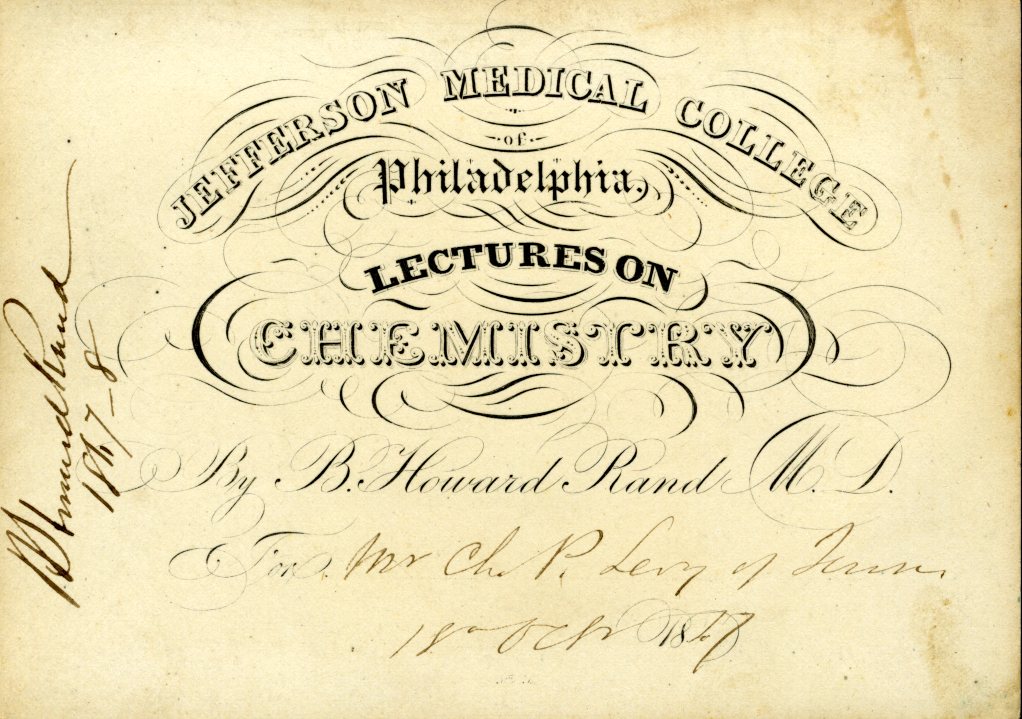 JEFFERSON MEDICAL COLLEGE
of
Philadelphia,
LECTURES ON
CHEMISTRY
By B. Howard Rand M. D.
For Mr Ch. P. Levy of Tenn.
Oct 1867
B Howard Rand
1867-8